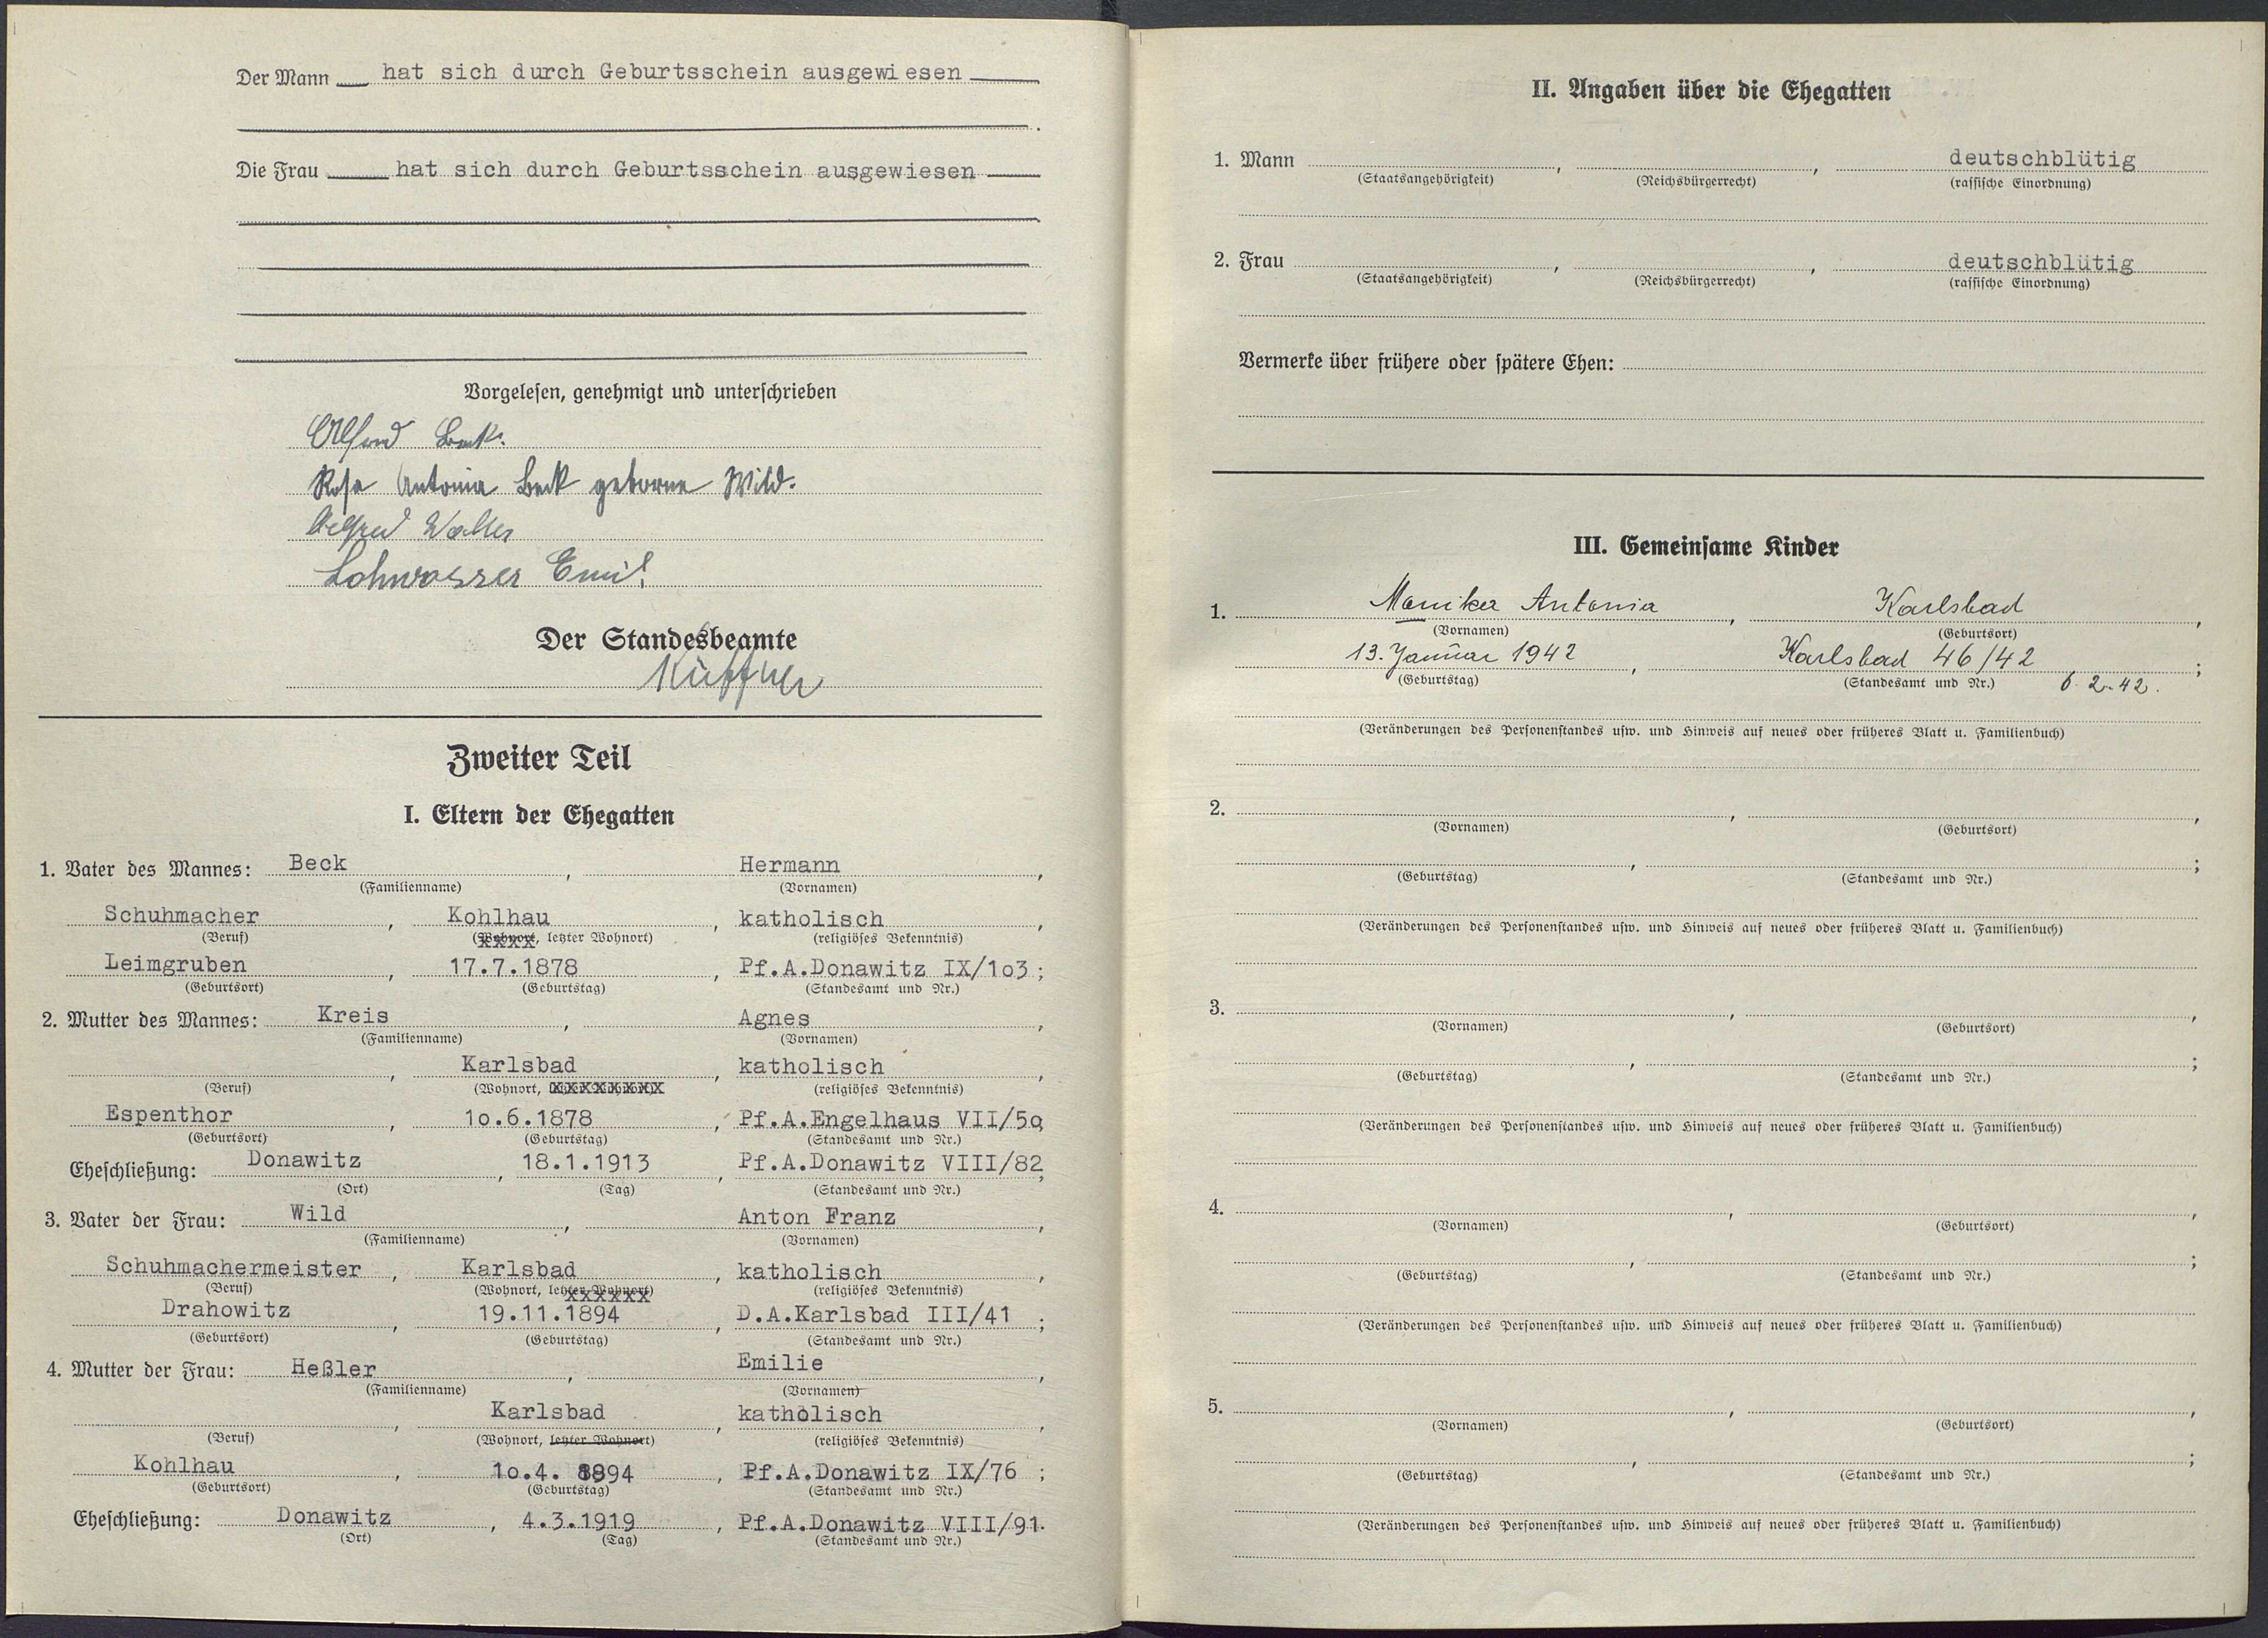 Der Mann hat sich durch Geburtsschein ausgewiesen
Die Frau hat sich durch Geburtsschein ausgewiesen
Vorgelesen, genehmigt und unterschrieben
Alfred Beck.
Rosa Antonia Beck geborne Wild.
Alfred Walter
Lohwasser Emil
Der Standesbeamte
Küffner
Zweiter Teil
I. Eltern der Ehegatten
1. Vater des Mannes: Beck, Hermann,
(Familienname) (Vornamen)
Schuhmacher, Kohlhau, katholisch,
(Beruf) (Wohnort, letzter Wohnort) (religiöses Bekenntnis)
Leimgruben, 17.7.1878, Pf.A.Donawitz IX/1o3;
(Geburtsort) (Geburtstag) (Standesamt und Nr.)
2. Mutter des Mannes: Kreis, Agnes,
(Familienname) (Vornamen)
, Karlsbad, katholisch,
(Beruf) (Wohnort, letzter Wohnort) (religiöses Bekenntnis)
Espenthor, 1o.6.1878, Pf.A.Engelhaus VII/5o,
(Geburtsort) (Geburtstag) (Standesamt und Nr.)
Eheschließung: Donawitz, 18.1.1913, Pf.A.Donawitz VIII/82;
(Ort) (Tag) (Standesamt und Nr.)
3. Vater der Frau: Wild, Anton Franz,
(Familienname) (Vornamen)
Schuhmachermeister, Karlsbad, katholisch,
(Beruf) (Wohnort, letzter Wohnort) (religiöses Bekenntnis)
Drahowitz, 19.11.1894, D.A.Karlsbad III/41;
(Geburtsort) (Geburtstag) (Standesamt und Nr.)
4. Mutter der Frau: Heßler, Emilie,
(Familienname) (Vornamen)
, Karlsbad, katholisch,
(Beruf) (Wohnort, letzter Wohnort) (religiöses Bekenntnis)
Kohlhau, 1o.4. 1894, Pf.A.Donawitz IX/76;
(Geburtsort) (Geburtstag) (Standesamt und Nr.)
Eheschließung: Donawitz, 4.3.1919, Pf.A.Donawitz VIII/91.
(Ort) (Tag) (Standesamt und Nr.)
II. Angaben über die Ehegatten
1. Mann , , deutschblütig
(Staatsangehörigkeit) (Reichsbürgerrecht) (rassische Einordnung)
2. Frau , , deutschblütig
(Staatsangehörigkeit) (Reichsbürgerrecht) (rassische Einordnung)
Vermerke über frühere oder spätere Ehen:
III. Gemeinsame Kinder
1. Monika Antonia, Karlsbad,
(Vornamen) (Geburtsort)
13. Januar 1942, Karlsbad 46/42;
(Geburtstag) (Standesamt und Nr.) 6.2.42.
(Veränderungen des Personenstandes usw. und Hinweis auf neues oder früheres Blatt u. Familienbuch)
2. , ,
(Vornamen) (Geburtsort)
, ;
(Geburtstag) (Standesamt und Nr.)
(Veränderungen des Personenstandes usw. und Hinweis auf neues oder früheres Blatt u. Familienbuch)
3. , ,
(Vornamen) (Geburtsort)
, ;
(Geburtstag) (Standesamt und Nr.)
(Veränderungen des Personenstandes usw. und Hinweis auf neues oder früheres Blatt u. Familienbuch)
4. , ,
(Vornamen) (Geburtsort)
, ;
(Geburtstag) (Standesamt und Nr.)
(Veränderungen des Personenstandes usw. und Hinweis auf neues oder früheres Blatt u. Familienbuch)
5. , ,
(Vornamen) (Geburtsort)
, ;
(Geburtstag) (Standesamt und Nr.)
(Veränderungen des Personenstandes usw. und Hinweis auf neues oder früheres Blatt u. Familienbuch)